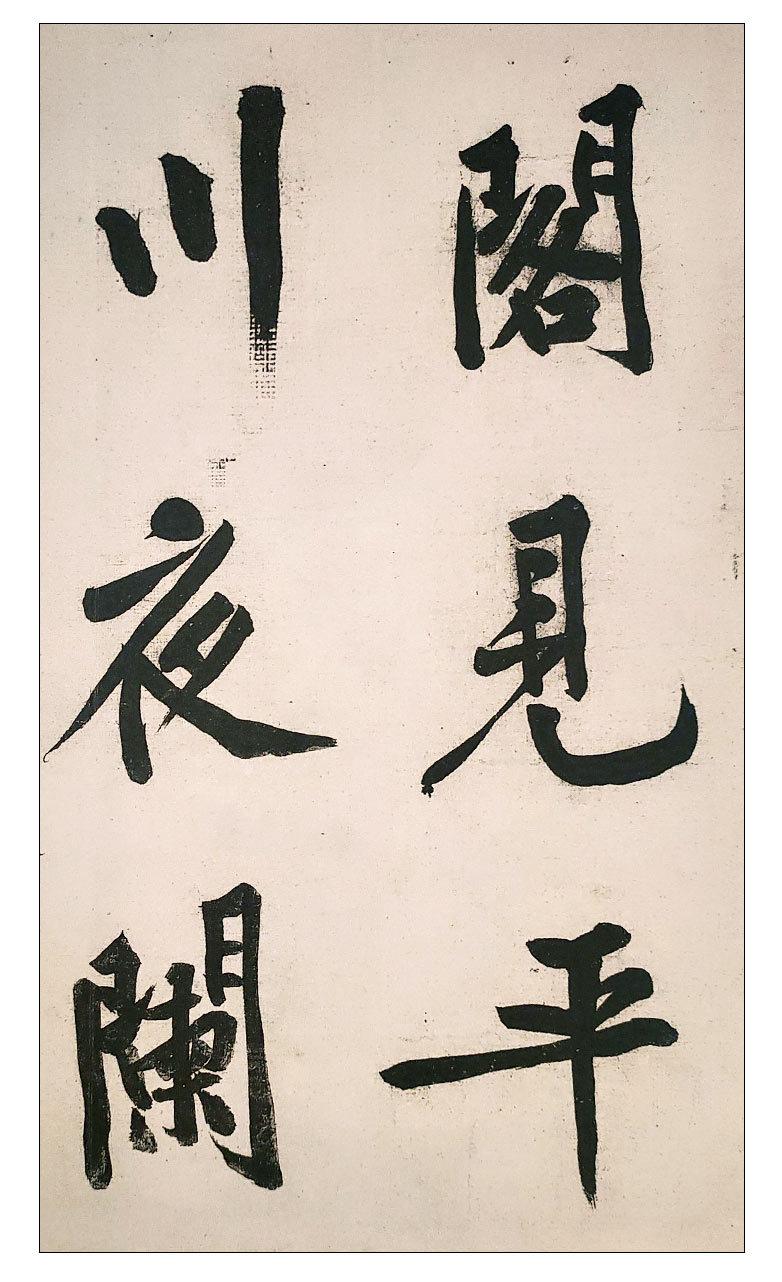 閣見平
川夜闌